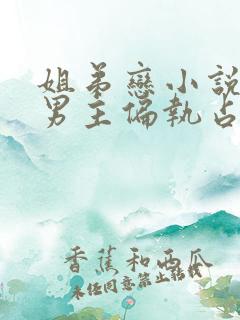 姐弟戀小說
男主偏執占
香蕉和西瓜
未经同意禁止转载